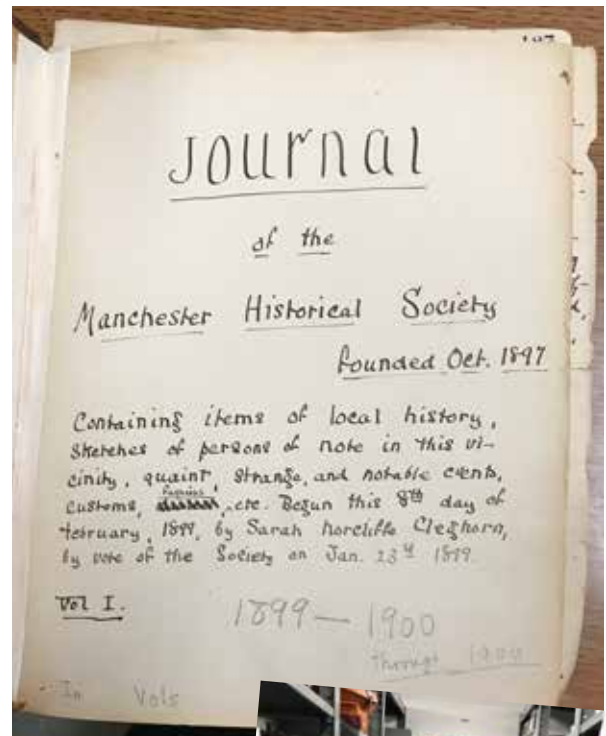 Journal
of the
Manchester Historical Society
Founded Oct. 1897
Containing items of local history,
Sketches of persons of note in this vi-
cinity, quaint, strange, and notable events,
customs, fashions, etc. Begun this 8th day of
February, 1899, by Sarah Norcliffe Cleghorn,
by vote of the Society on Jan. 23rd 1899.
Vol I.
1899 — 1900
through 1900
In Vols